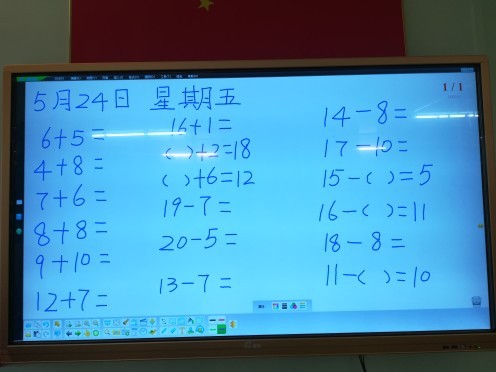 1/1
5月24日 星期五
6+5=
4+8=
7+6=
8+8=
9+10=
12+7=
16+1=
( )+2=18
( )+6=12
19-7=
20-5=
13-7=
14-8=
17-10=
15-( )=5
16-( )=11
18-8=
11-( )=10